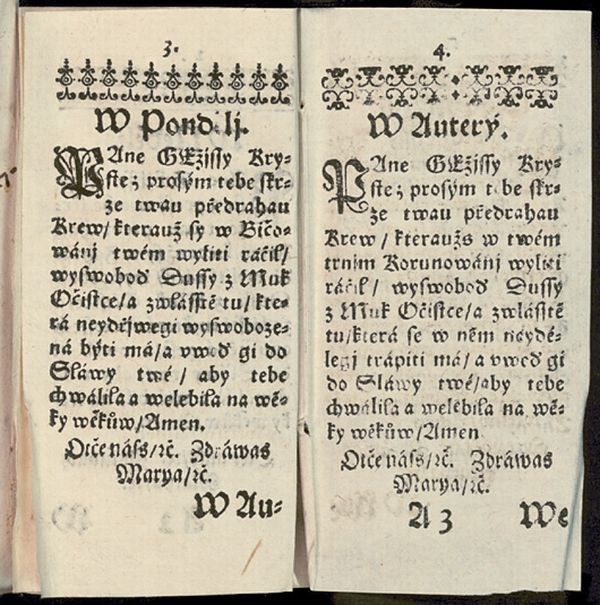 3.
W Pondělj.
PAne GEžissy Kry-
ste; prosým tebe skr-
ze twau předrahau
Krew / kterauž sy w Bičo-
wánj twém wyliti ráčil /
wyswoboď Dussy z Muk
Očistce / a zwlásstě tu / kte-
rá neydéjwegi wyswoboze-
ná býti má / a vweď gi do
Sláwy twé / aby tebe
chwálila a welebila na wě-
ky wěkůw / Amen.
Otče náss / ꝛč. Zdráwas
Marya / ꝛč.
W Au-
4.
W Auterý.
PAne GEžissy Kry-
ste; prosým tebe skr-
ze twau předrahau
Krew / kteraužs w twém
trnjm Korunowánj wyliti
ráčil / wyswoboď Dussy
z Muk Očistce / a zwlásstě
tu / která se w něm neydé-
legj trápiti má / a vweď gi
do Sláwy twé / aby tebe
chwálila a welebila na wě-
ky wěkůw / Amen
Otče náss / ꝛč. Zdráwas
Marya / ꝛč.
A 3 We